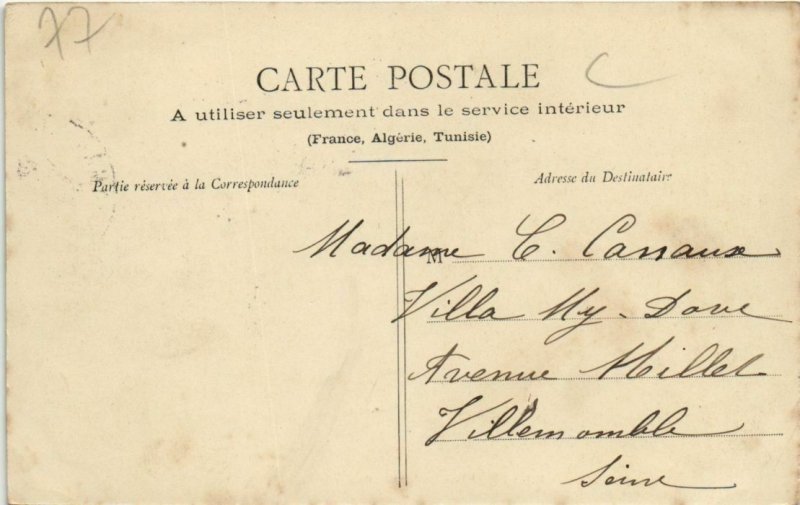 77
C
CARTE POSTALE
A utiliser seulement dans le service intérieur
(France, Algérie, Tunisie)
Partie réservée à la Correspondance
Adresse du Destinataire
M
Madame C.
Villa My-Dove
Avenue Millet
Villemomble
Seine